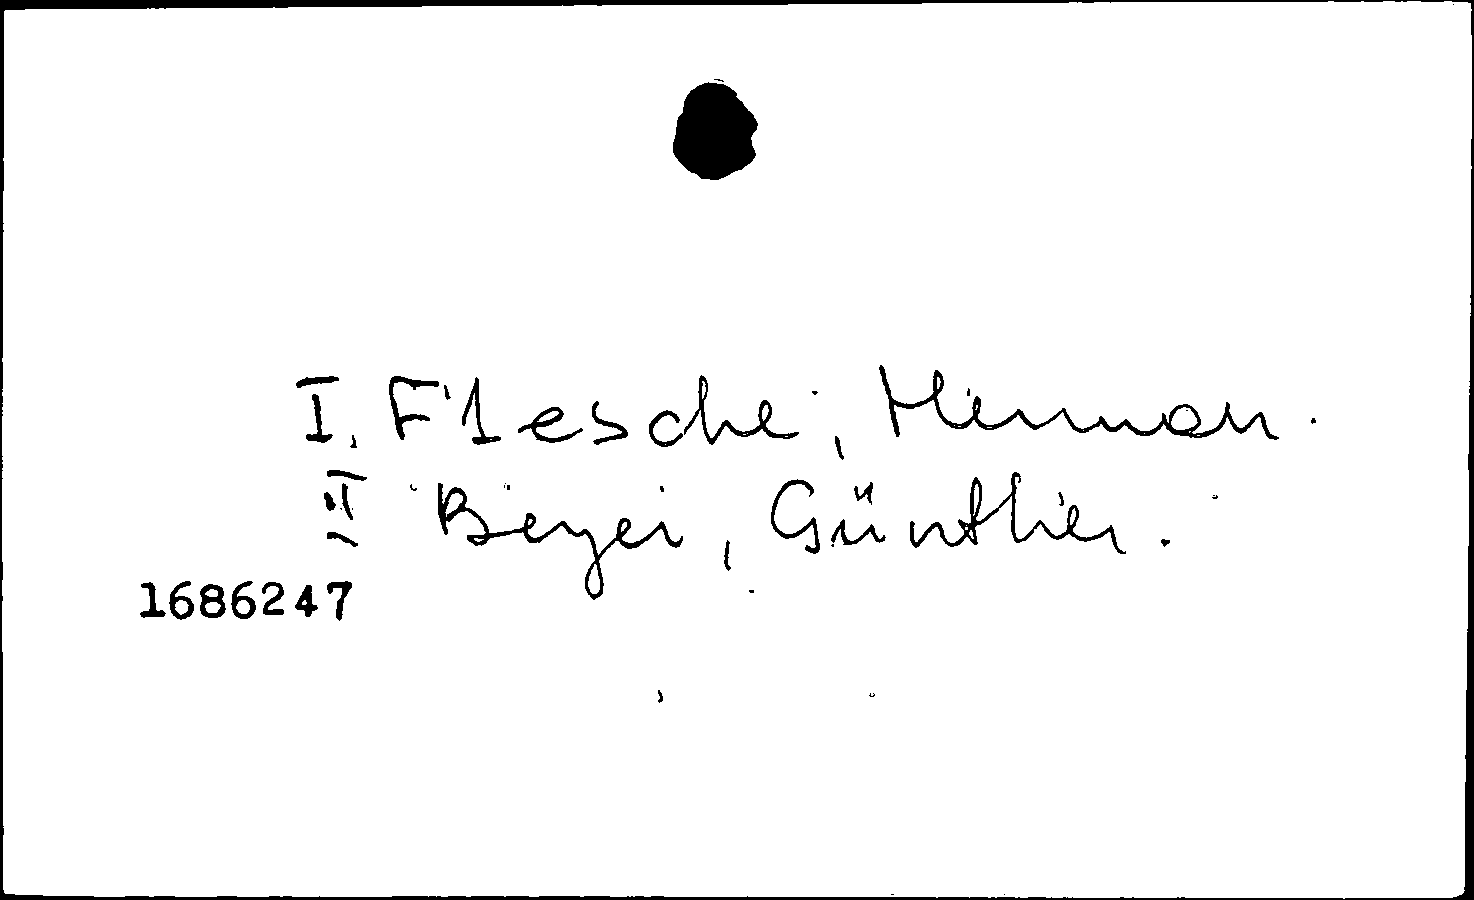 I. Flesche, Herman.
II Beyer, Günther.
1686247